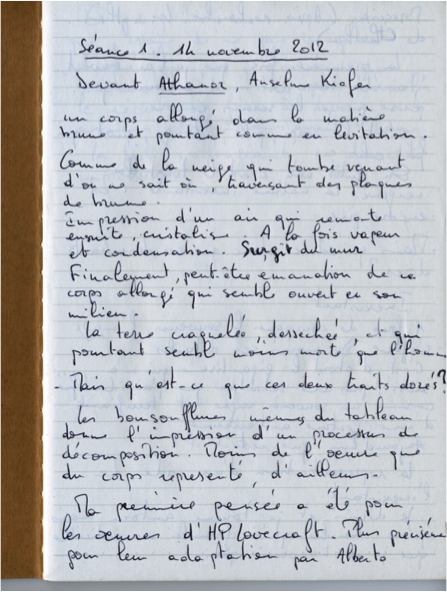 Séance 1. 14 novembre 2012
Devant Athanor, Anselm Kiefer
un corps allongé dans la matière
brune et pourtant comme en levitation.
Comme de la neige qui tombe venant
d'où ne sait où, traversant des plaques
de brume.
Impression d'un air qui remonte
ensuite, cristalise. A la fois vapeur
et condensation. Surgit du mur
Finalement, peut-être émanation de ce
corps allongé qui semble ouvert en son
milieu.
La terre craquelée, dessechée, et qui
pourtant semble moins morte que l'homme
- Mais qu'est-ce que ces deux traits dorés?
Les boursouflures mêmes du tableau
donne l'impression d'un processus de
décomposition. Moins de l'oeuvre que
du corps representé, d'ailleurs.
Ma première pensée a été pour
les oeuvres d'HP Lovecraft. Plus précisém
pour leur adaptation par Alberto